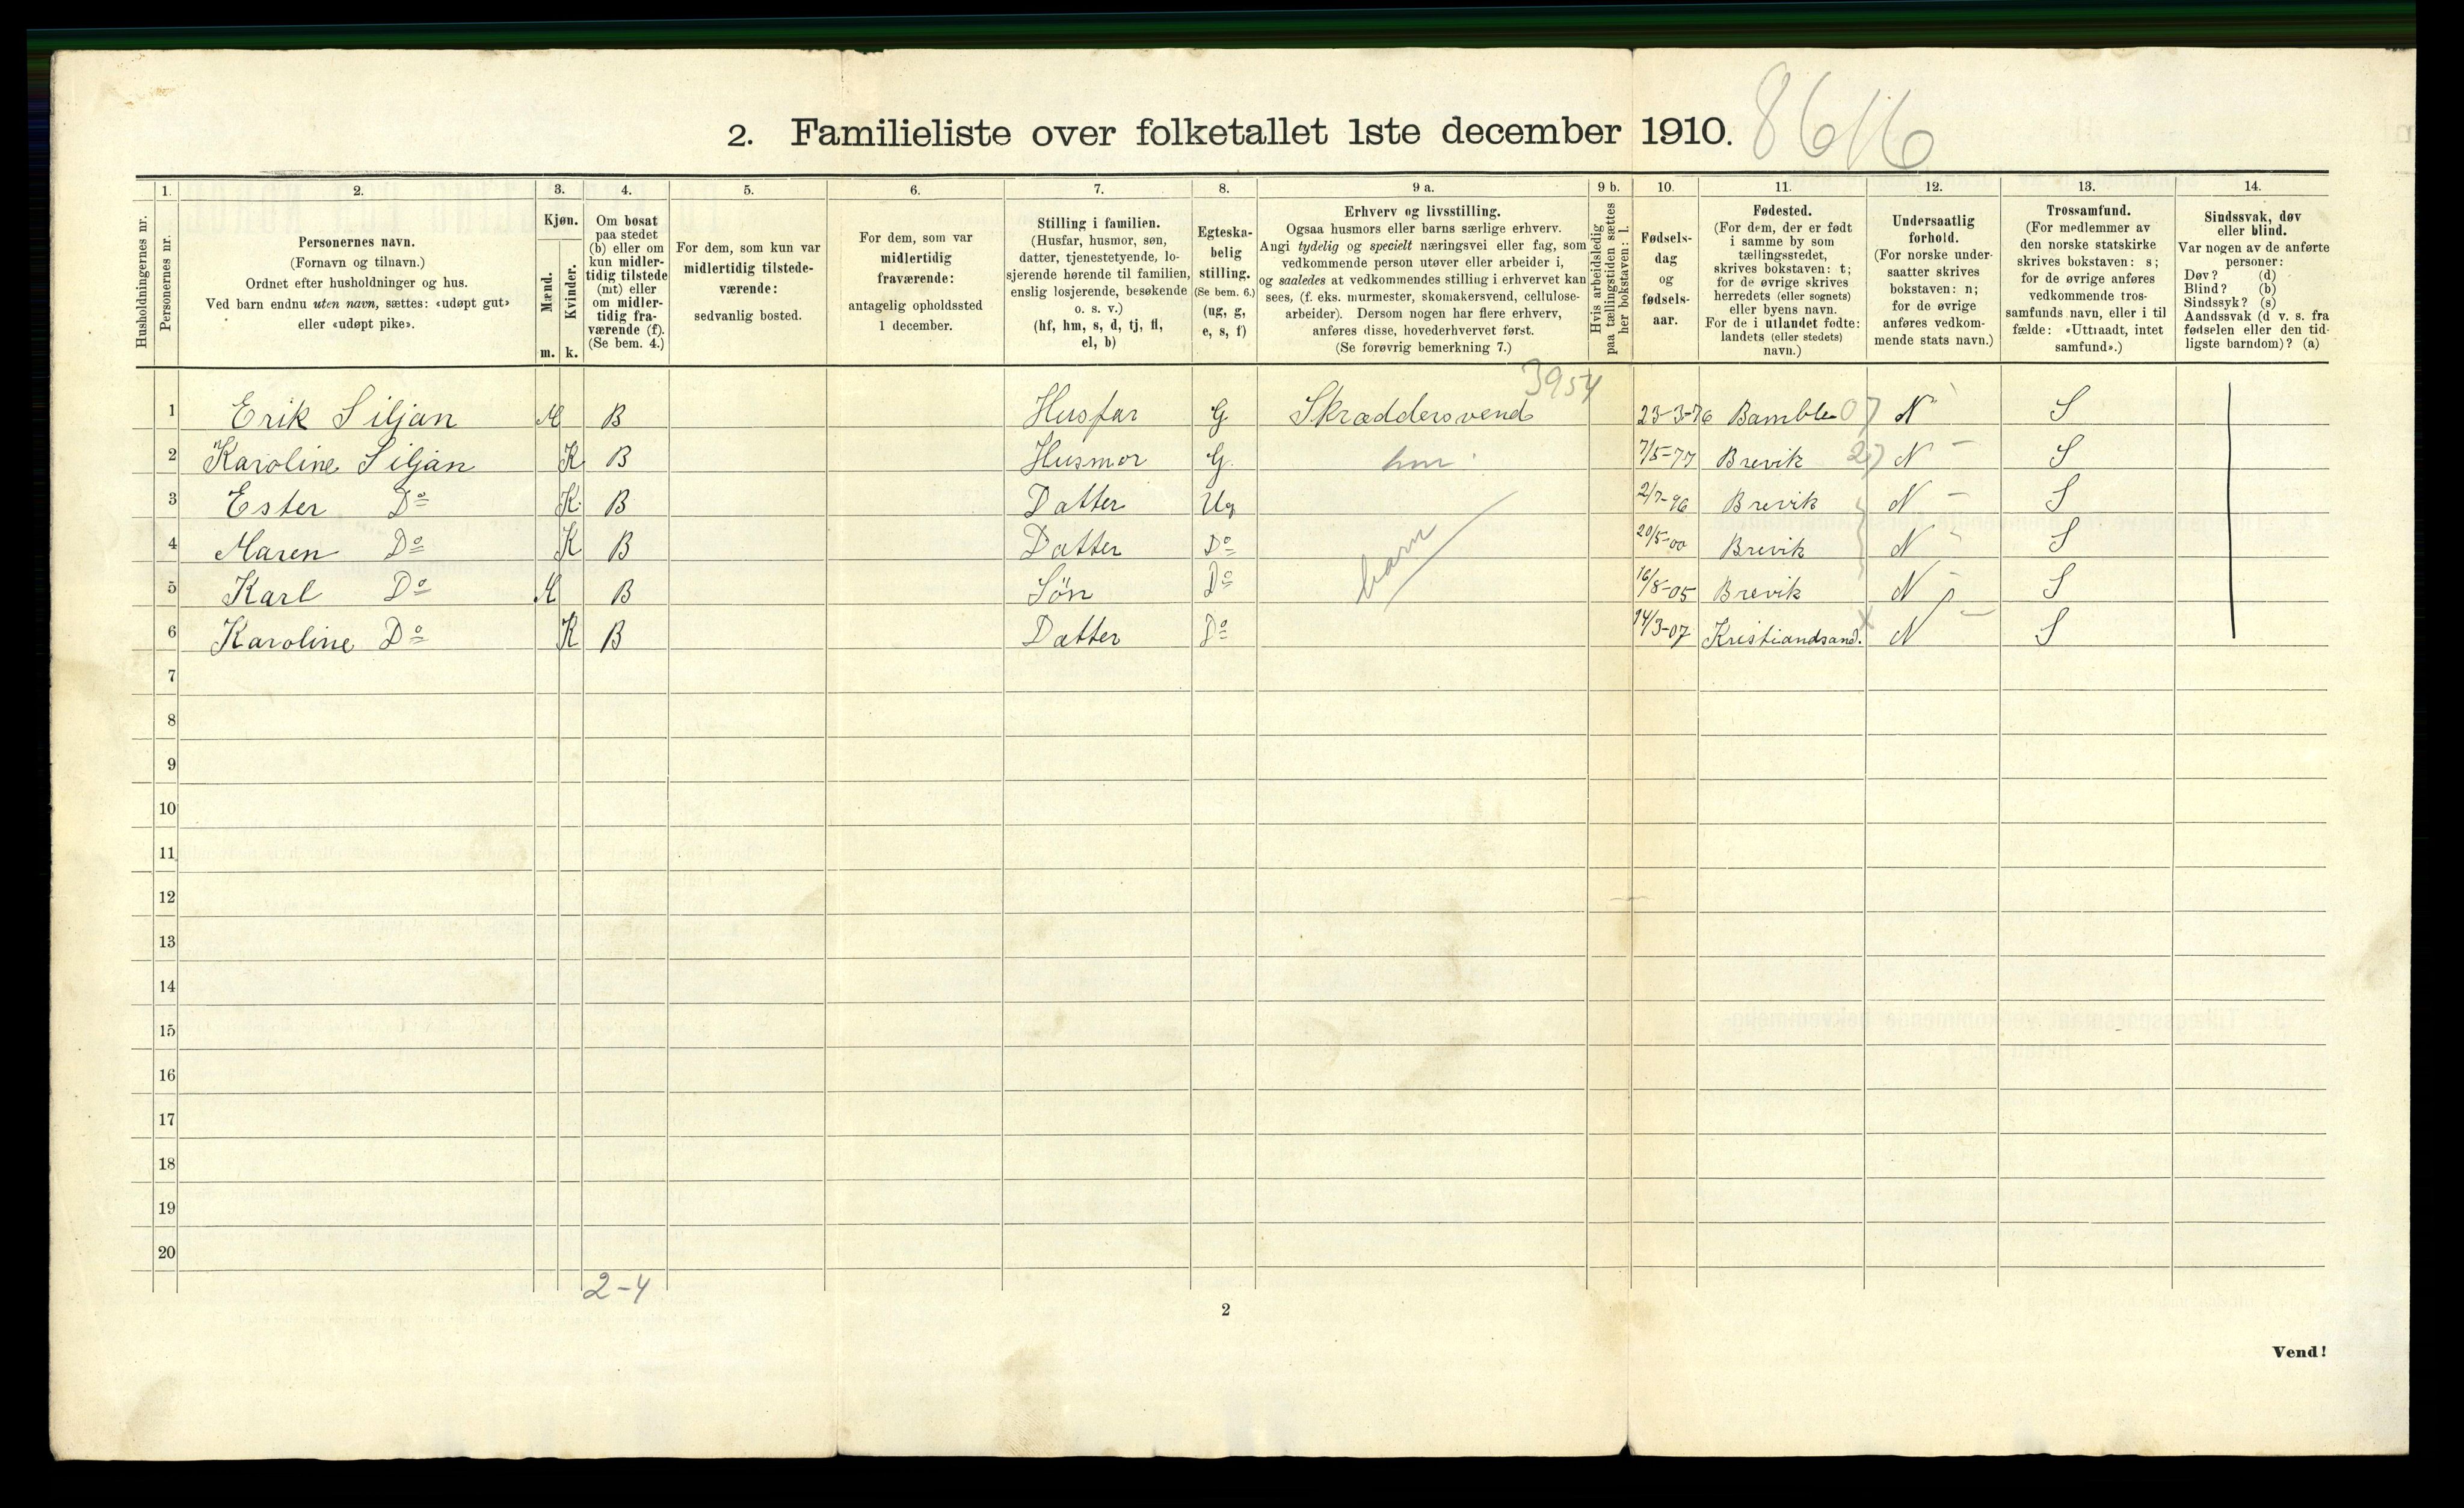 8616
2. Familieliste over folketallet 1ste december 1910.
1. 2. 3. 4. 5. 6. 7. 8. 9 a. 9 b. 10. 11. 12. 13. 14.
Husholdningernes nr.
Personernes nr.
Personernes navn.
(Fornavn og tilnavn.)
Ordnet efter husholdninger og hus.
Ved barn endnu uten navn, sættes: «udøpt gut»
eller «udøpt pike».
Kjøn.
Mænd.
Kvinder.
m. k.
Om bosat
paa stedet
(b) eller om
kun midler-
tidig tilstede
(mt) eller
om midler-
tidig fra-
værende (f).
(Se bem. 4.)
For dem, som kun var
midlertidig tilstede-
værende:
sedvanlig bosted.
For dem, som var
midlertidig
fraværende:
antagelig opholdssted
1 december.
Stilling i familien.
(Husfar, husmor, søn,
datter, tjenestetyende, lo-
sjerende hørende til familien,
enslig losjerende, besøkende
o. s. v.)
(hf, hm, s, d, tj, fl,
el, b)
Egteska-
belig
stilling.
(Se bem. 6.)
(ug, g,
e, s, f)
Erhverv og livsstilling.
Ogsaa husmors eller barns særlige erhverv.
Angi tydelig og specielt næringsvei eller fag, som
vedkommende person utøver eller arbeider i,
og saaledes at vedkommendes stilling i erhvervet kan
sees, (f. eks. murmester, skomakersvend, cellulose-
arbeider). Dersom nogen har flere erhverv,
anføres disse, hovederhvervet først.
(Se forøvrig bemerkning 7.)
Hvis arbeidsledig
paa tællingstiden sættes
her bokstaven: l.
Fødsels-
dag
og
fødsels-
aar.
Fødested.
(For dem, der er født
i samme by som
tællingsstedet,
skrives bokstaven: t;
for de øvrige skrives
herredets (eller sognets)
eller byens navn.
For de i utlandet fødte:
landets (eller stedets)
navn.)
Undersaatlig
forhold.
(For norske under-
saatter skrives
bokstaven: n;
for de øvrige
anføres vedkom-
mende stats navn.)
Trossamfund.
(For medlemmer av
den norske statskirke
skrives bokstaven: s;
for de øvrige anføres
vedkommende tros-
samfunds navn, eller i til
fælde: «Uttraadt, intet
samfund».)
Sindssvak, døv
eller blind.
Var nogen av de anførte
personer:
Døv? (d)
Blind? (b)
Sindssyk? (s)
Aandssvak (d v. s. fra
fødselen eller den tid-
ligste barndom)? (a)
3954
1 Erik Siljan M B Husfar G Skræddersvend 23-3-76 Bamble 07 N S
2 Karoline Siljan K B Husmor G hm 7/5-77 Brevik 27 N S
3 Ester Do K B Datter Ug 2/7-96 Brevik N S
4 Maren Do K B Datter Do barn 20/5-00 Brevik N S
5 Karl Do M B Søn Do 16/8-05 Brevik N S
6 Karoline Do K B Datter Do 14/3-07 Kristiandsand. x N S
7
8
9
10
11
12
13
14
15
16
17
18
19
20
2-4
2
Vend!